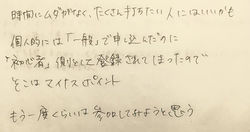 時間にムダがなく、たくさん打ちたい人にはいいかも
個人的には「一般」で申し込んだのに
「初心者」側として登録されてしまったので
そこはマイナスポイント
もう一度くらいは参加してみようと思う